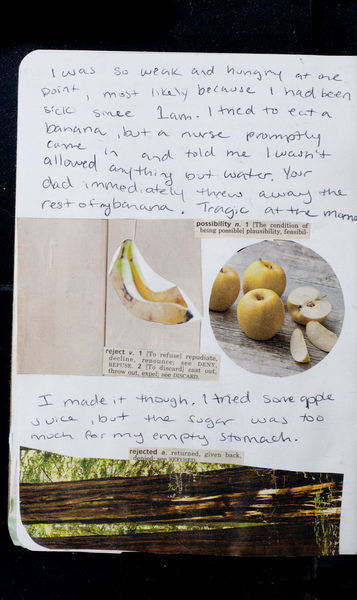 I was so weak and hungry at one
point, most likely because I had been
sick since 1am. I tried to eat a
banana, but a nurse promptly
came in and told me I wasn't
allowed anything but water. Your
dad immediately threw away the
rest of my banana. Tragic at the mome
possibility n. 1 [The condition of
being possible] plausibility, feasibil-
reject v. 1 [To refuse] repudiate,
decline, renounce; see DENY,
REFUSE. 2 [To discard] cast out,
throw out, expel; see DISCARD.
I made it though. I tried some apple
juice, but the sugar was too
much for my empty stomach.
rejected a. returned, given back,
denied; see REFUSED.